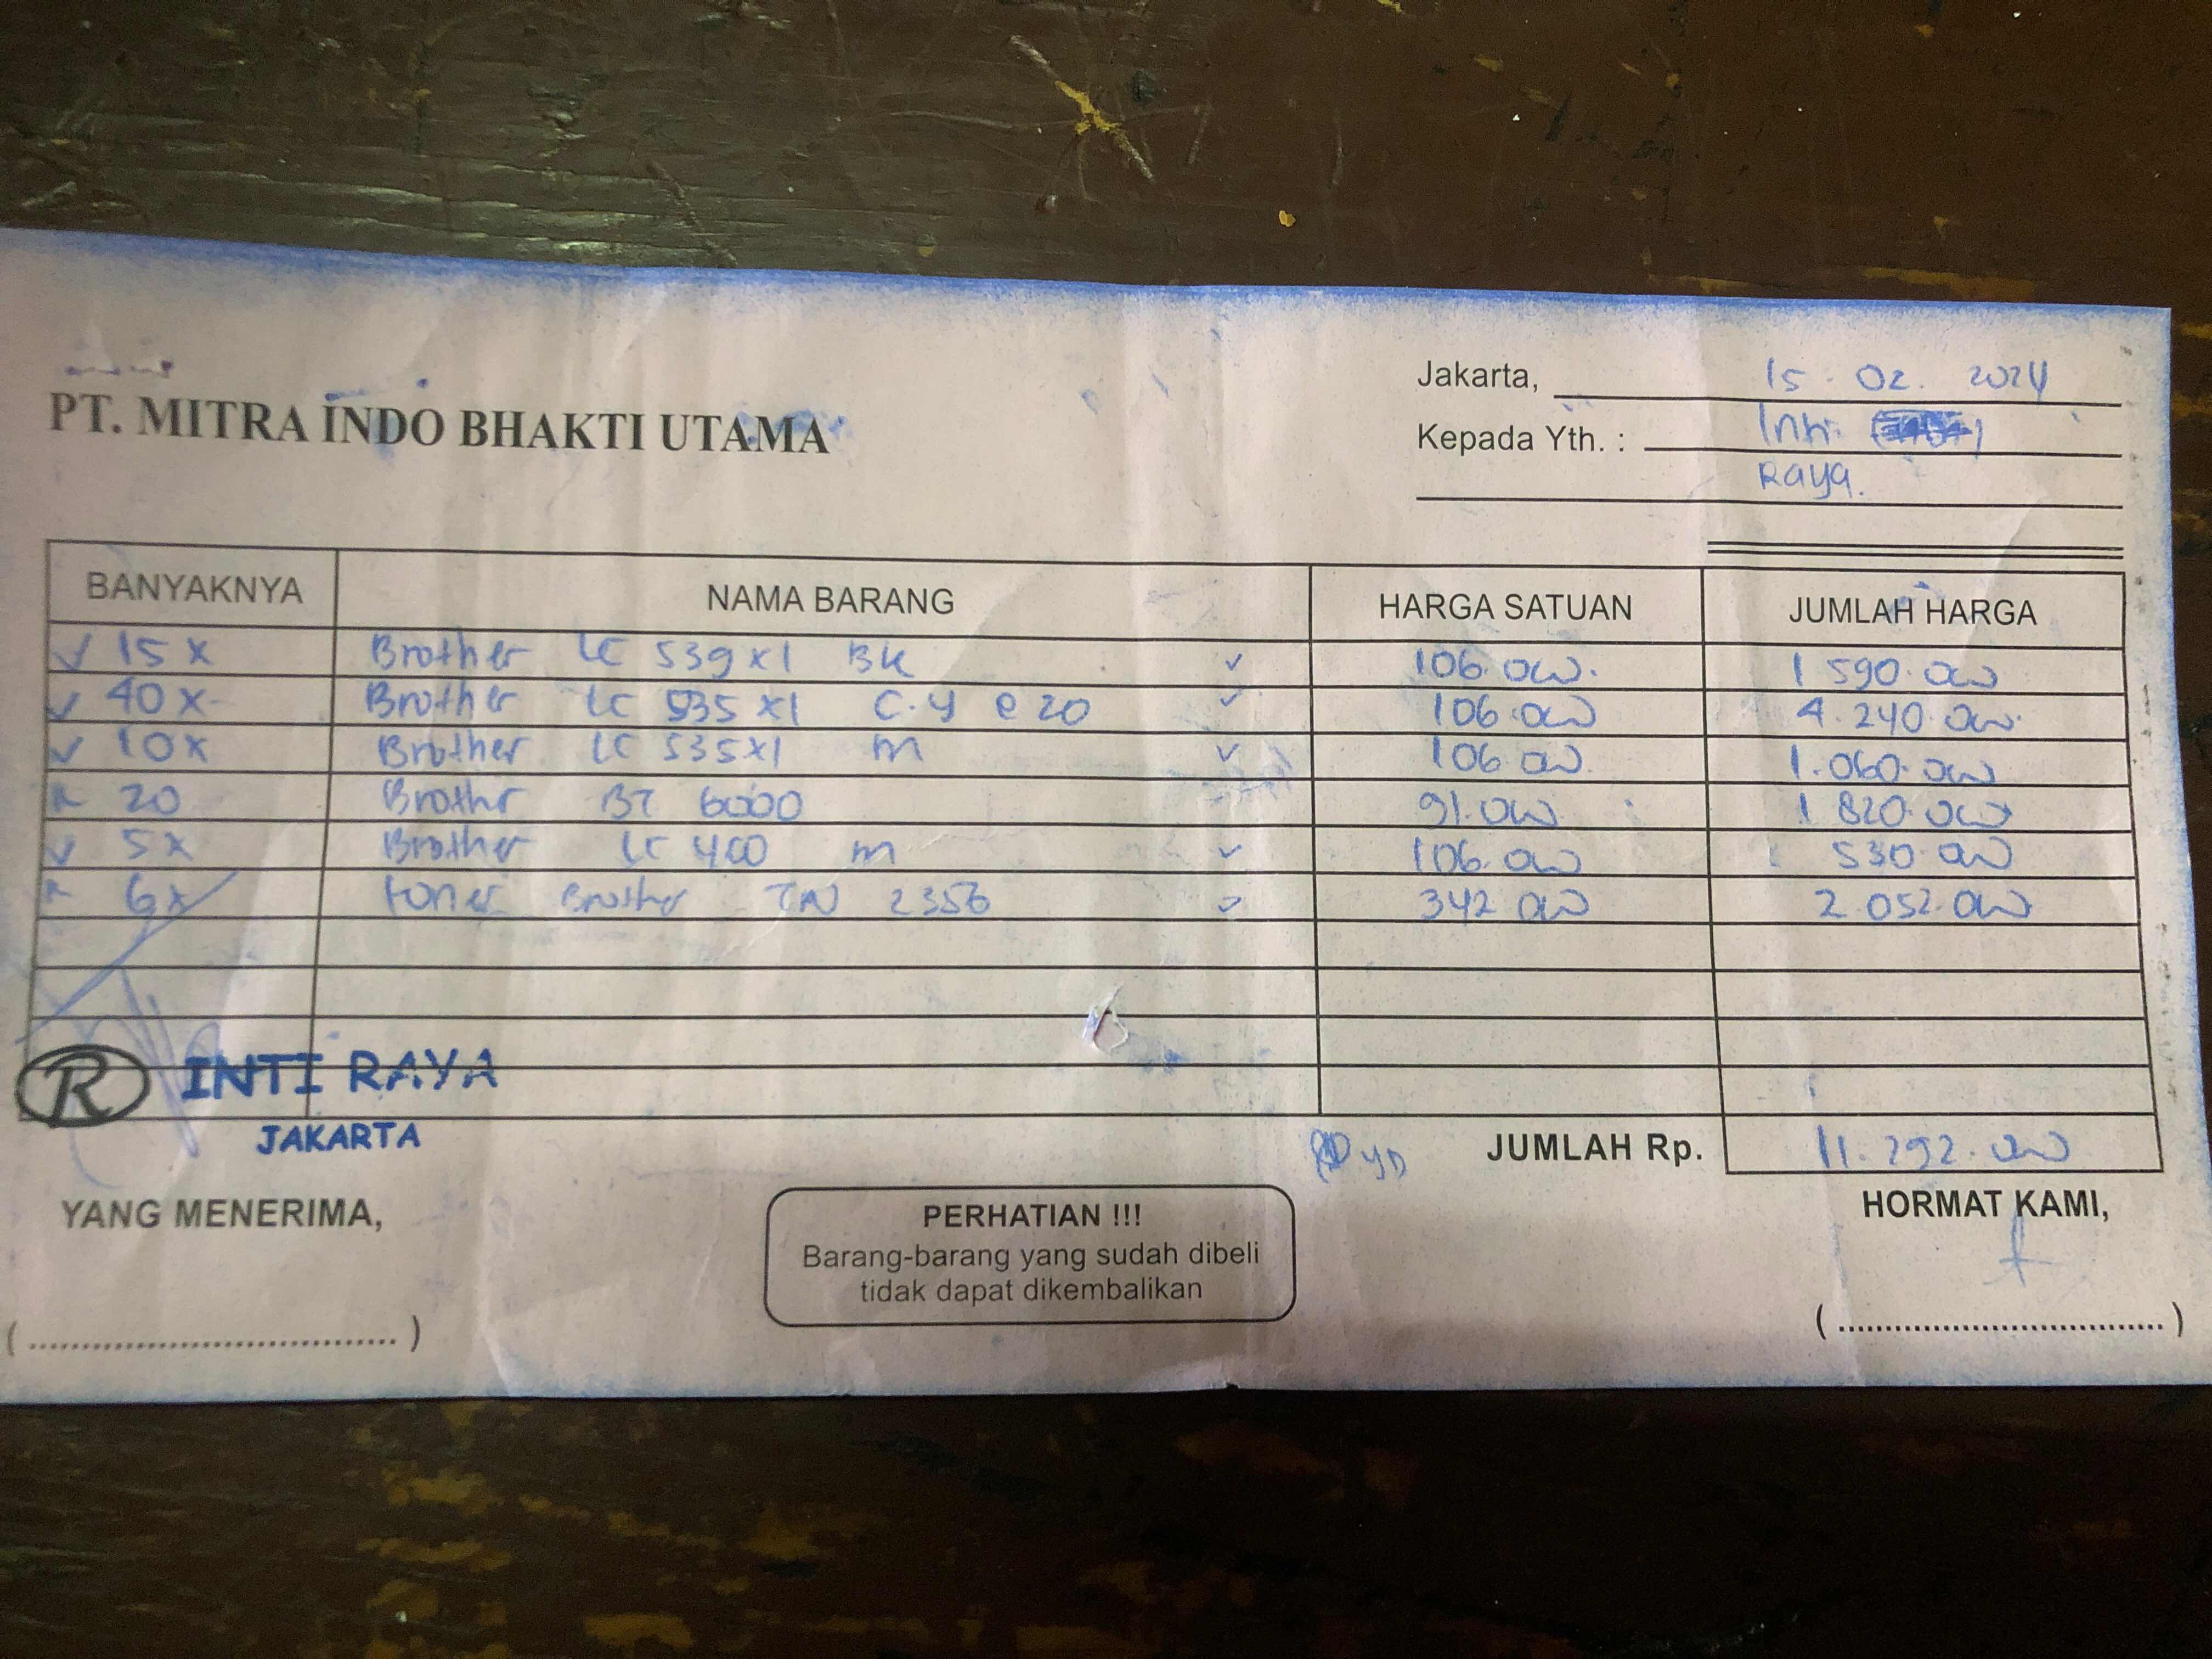 PT. MITRA INDO BHAKTI UTAMA
Jakarta, 15 . 02 . 2024
Kepada Yth. : Inti
Raya.
BANYAKNYA NAMA BARANG HARGA SATUAN JUMLAH HARGA
15 x Brother LC 539 x1 BK 106.000. 1 590.000
40 x Brother LC 535 x1 C.Y @ 20 106.000 4.240.000
10 x Brother LC 535 x1 m 106 000 1.060.000
20 Brothr BT 6000 91.000 1 820.000
5 x Brother LC 400 m 106.000 530.000
6 x toner Brother TN 2356 342 000 2.052.000
R INTI RAYA
JAKARTA
JUMLAH Rp. 11.292.000
YANG MENERIMA,
PERHATIAN !!!
Barang-barang yang sudah dibeli
tidak dapat dikembalikan
HORMAT KAMI,
(....................................)
(....................................)